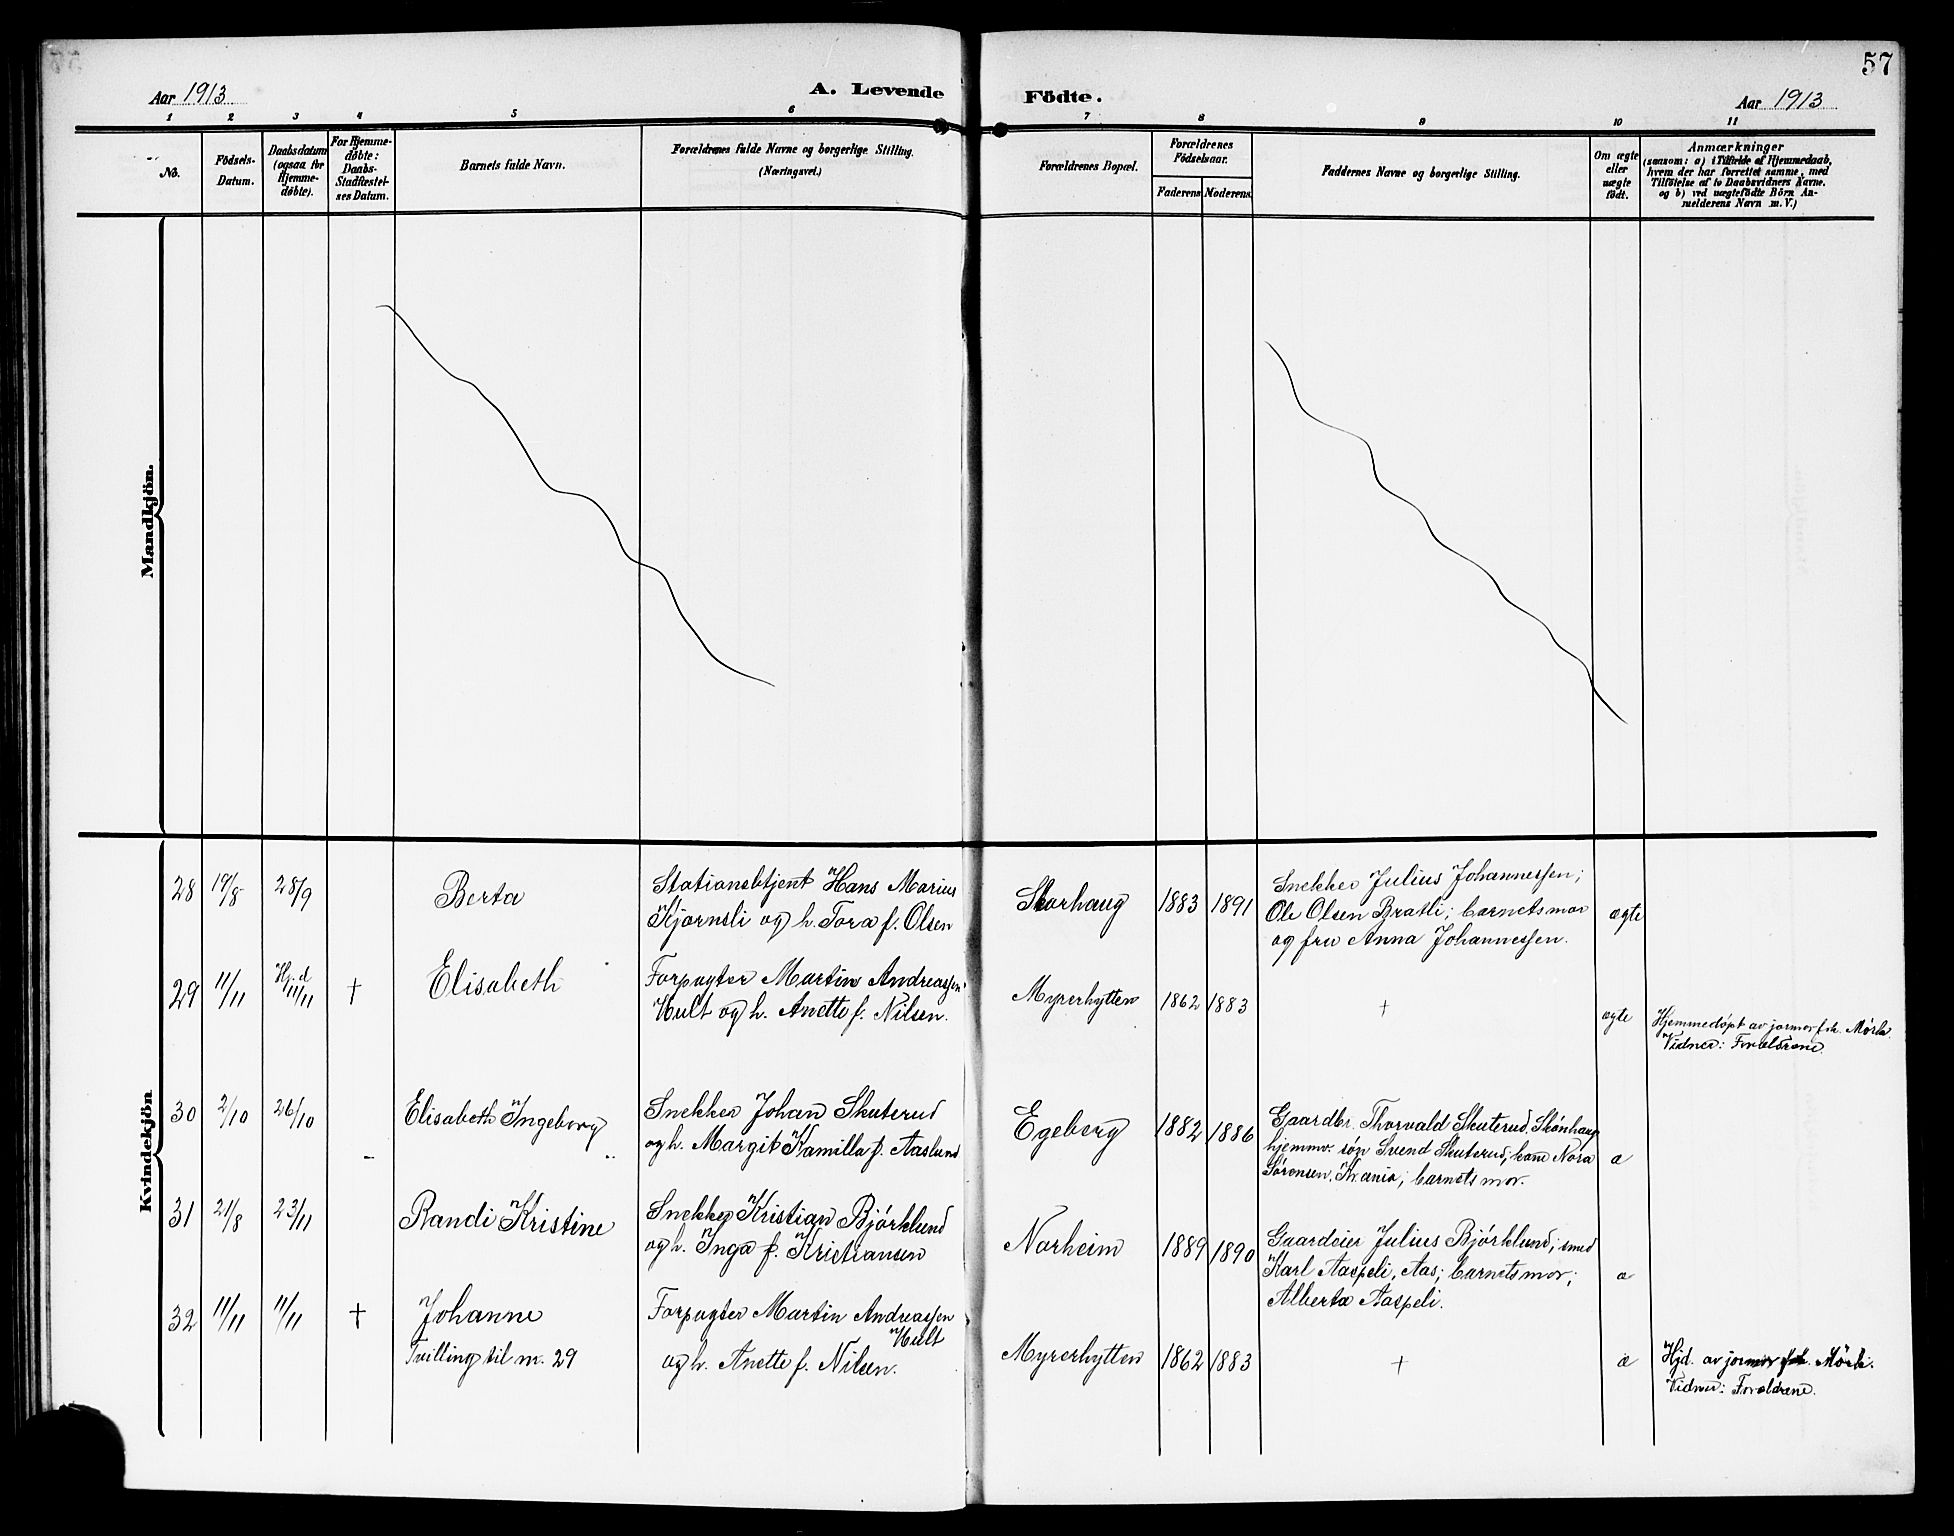 57
Aar 1913
A. Levende Födte.
Aar 1913
1 2 3 4 5 6 7 8 9 10 11
No.
Födsels-
Datum.
Daabsdatum
(ogsaa for
Hjemme-
döbte).
For Hjemme-
döbte:
Daabs-
Stadfæstel-
ses Datum.
Barnets fulde Navn.
Forældrenes fulde Navne og borgerlige Stilling.
(Næringsvei.)
Forældrenes Bopæl.
Forældrenes
Födselsaar.
Faderens Moderens
Faddernes Navne og borgerlige Stilling.
Om ægte
eller
uægte
födt.
Anmærkninger
(saasom: a) i Tilfælde af Hjemmedaab,
hvem der har forrettet samme, med
Tilföielse af to Daabsvidners Navne,
og b) ved uægtefödte Börn An-
melderens Navn m. V.)
Mandkjön.
Kvindekjön
28 19/8 28/9
Berta
Stationsbtjent Hans Marius
Kjørnsli og h. Tora f. Olsen
Skorhaug
1883 1891
Snekker Julius Johannessen;
Ole Olsen Bratli; barnets mor
og fru Anna Johannessen.
ægte
29 11/11 Hj.d 11/11 †
Elisabeth
Forpagter Martin Andreassen
Hult og h. Anette f. Nilsen.
Myrerhytten
1862 1883
†
ægte
Hjemmedøpt av jormor frk. Mørk.
Vidner: Forældrene.
30 2/10 26/10
Elisabeth Ingeborg
Snekker Johan Skuterud
og h. Margit Kamilla f. Aaslund
Egeberg
1882 1886
Gaardbr. Thorvald Skuterud, Skønhaug
hjemmv. søn Svend Skuterud; Nora
Sørensen, Kr.ania; barnets mor.
æ
31 21/8 23/11
Randi Kristine
Snekker Kristian Bjørklund
og h. Inga f. Kristiansen
Norheim
1889 1890
Gaardeier Julius Bjørklund; smed
Karl Aaspeli, Aas; barnets mor;
Alberta Aaspeli.
æ
32 11/11 11/11 †
Johanne
Tvilling til nr. 29
Forpagter Martin Andreassen
Hult
og h. Anette f. Nilsen.
Myrerhytten
1862 1883
†
æ
Hjd. av jormor frk. Mørk.
Vidner: Forældrene.